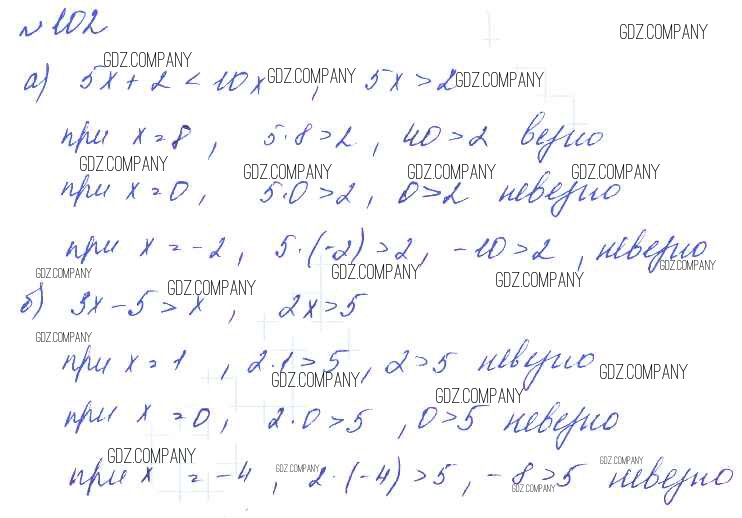 № 102
GDZ.COMPANY
GDZ.COMPANY
а) 5x + 2 < 10x , 5x > 2
GDZ.COMPANY GDZ.COMPANY
при x = 8 , 5·8 > 2 , 40 > 2 верно
GDZ.COMPANY GDZ.COMPANY GDZ.COMPANY GDZ.COMPANY
при x = 0 , 5·0 > 2 , 0 > 2 неверно
при x = -2 , 5·(-2) > 2 , -10 > 2 , неверно
GDZ.COMPANY GDZ.COMPANY GDZ.COMPANY
GDZ.COMPANY GDZ.COMPANY
б) 3x - 5 > x , 2x > 5
GDZ.COMPANY
при x = 1 , 2·1 > 5 , 2 > 5 неверно
GDZ.COMPANY GDZ.COMPANY
GDZ.COMPANY
при x = 0 , 2·0 > 5 , 0 > 5 неверно
GDZ.COMPANY GDZ.COMPANY GDZ.COMPANY
при x = -4 , 2·(-4) > 5 , -8 > 5 неверно
GDZ.COMPANY